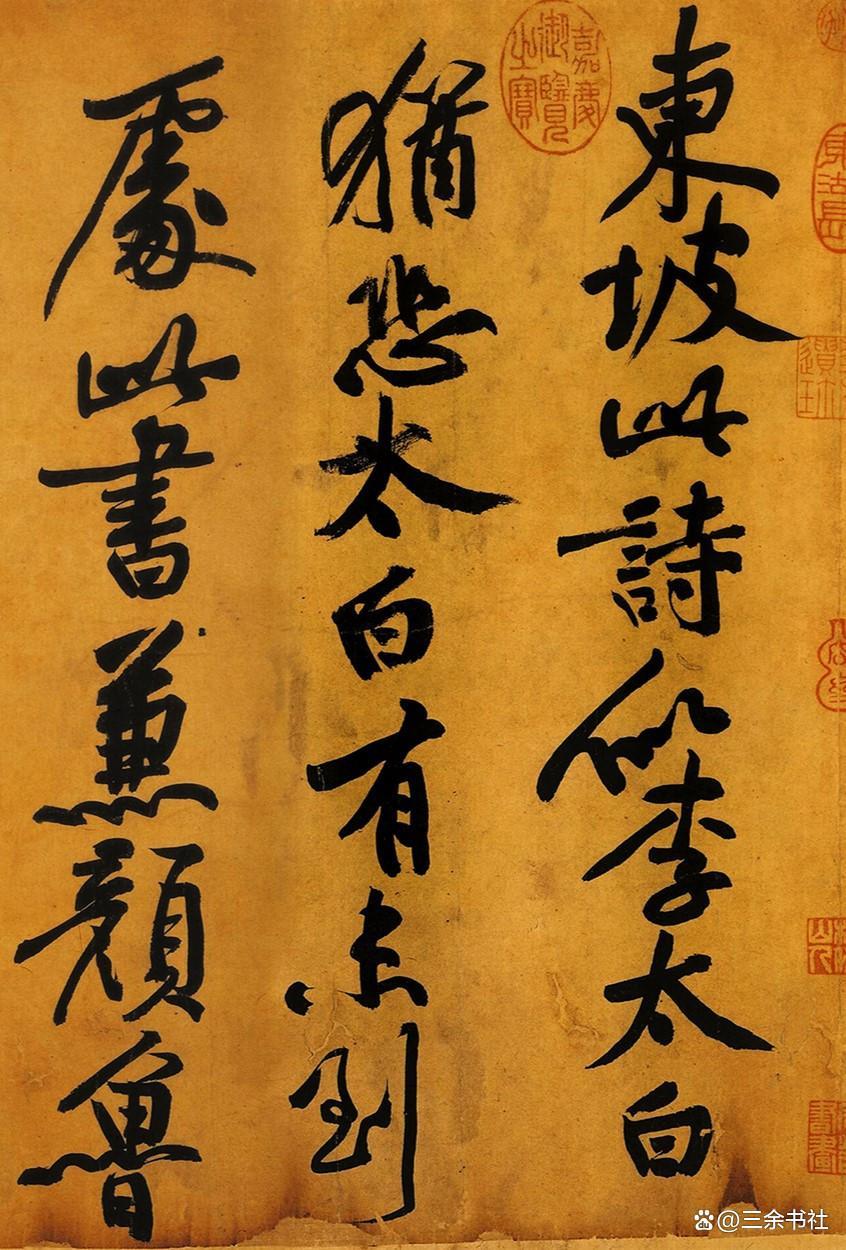 東坡此詩似李太白
猶恐太白有未到
處此書兼顏魯
嘉慶御覽之寶
@三余书社